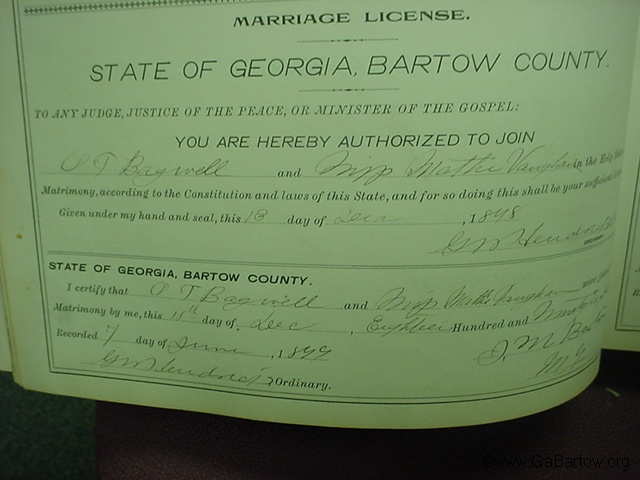 MARRIAGE LICENSE.
STATE OF GEORGIA, BARTOW COUNTY.
TO ANY JUDGE, JUSTICE OF THE PEACE, OR MINISTER OF THE GOSPEL:
YOU ARE HEREBY AUTHORIZED TO JOIN
O T Bagwell and Miss Mattie Vaughan in the Holy
Matrimony, according to the Constitution and laws of this State, and for so doing this shall be your sufficient
Given under my hand and seal, this 13 day of Dec, 1898
G W Hendricks
STATE OF GEORGIA, BARTOW COUNTY.
I certify that O T Bagwell and Miss Mattie Vaughan were
Matrimony by me, this 18th day of Dec, Eighteen Hundred and Ninety
Recorded 7 day of June, 1899
J. M. M G
G W Hendricks Ordinary.
©www.GaBartow.org